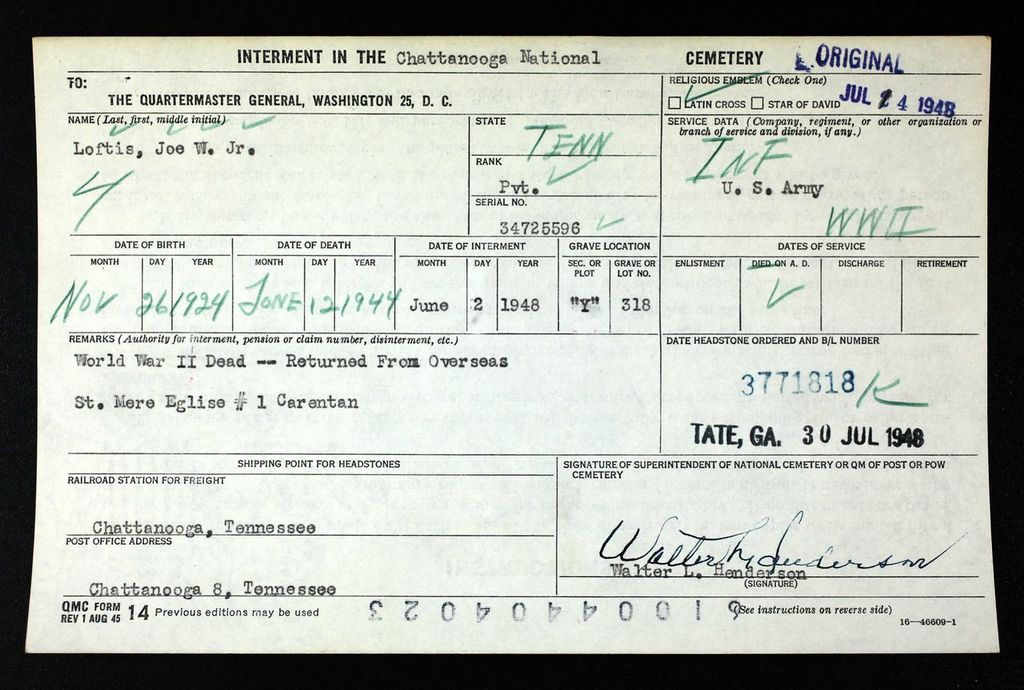 INTERMENT IN THE Chattanooga National CEMETERY ORIGINAL
TO:
THE QUARTERMASTER GENERAL, WASHINGTON 25, D. C.
RELIGIOUS EMBLEM (Check One)
LATIN CROSS STAR OF DAVID
JUL 14 1948
NAME (Last, first, middle initial)
Loftis, Joe W. Jr.
4
STATE
TENN
RANK
Pvt.
SERIAL NO.
34725596
SERVICE DATA (Company, regiment, or other organization or
branch of service and division, if any.)
INF
U. S. Army
WWII
DATE OF BIRTH DATE OF DEATH DATE OF INTERMENT GRAVE LOCATION DATES OF SERVICE
MONTH DAY YEAR MONTH DAY YEAR MONTH DAY YEAR SEC. OR PLOT GRAVE OR LOT NO. ENLISTMENT DIED ON A. D. DISCHARGE RETIREMENT
NOV 26 1924 JUNE 12 1944 June 2 1948 "Y" 318
REMARKS (Authority for interment, pension or claim number, disinterment, etc.)
World War II Dead -- Returned From Overseas
St. Mere Eglise # 1 Carentan
DATE HEADSTONE ORDERED AND B/L NUMBER
3771818 K
TATE, GA. 30 JUL 1948
SHIPPING POINT FOR HEADSTONES
RAILROAD STATION FOR FREIGHT
Chattanooga, Tennessee
POST OFFICE ADDRESS
Chattanooga 8, Tennessee
SIGNATURE OF SUPERINTENDENT OF NATIONAL CEMETERY OR QM OF POST OR POW
CEMETERY
Walter L. Henderson
Walter L. Henderson
(SIGNATURE)
QMC FORM
REV 1 AUG 45 14 Previous editions may be used
(See instructions on reverse side)
16—46609-1